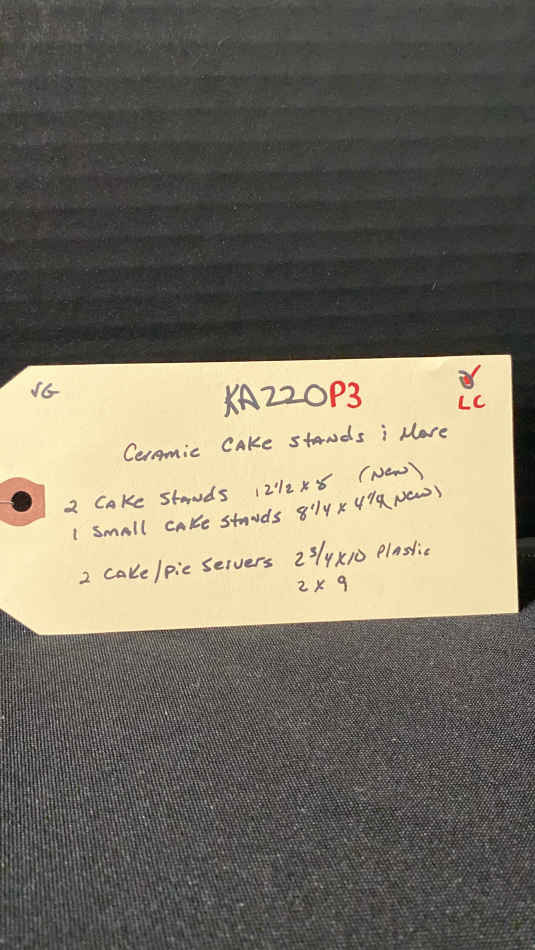 VG
KA220P3
LC
Ceramic CAKE stands & More
2 CAKE Stands 12 1/2 x 5 (New)
1 SMALL CAKE Stands 8 1/4 x 4 1/4 (New)
2 CAKE/PIE Servers 2 3/4 x 10 Plastic
2 x 9